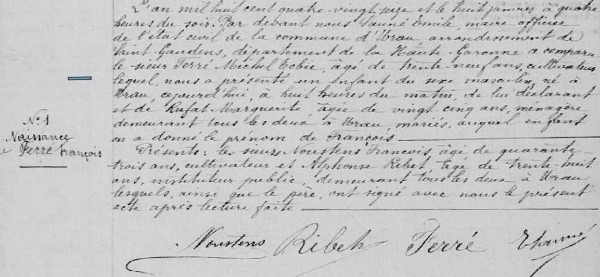 L'an mil huit cent quatre vingt seize et le huit janvier à quatre
heures du soir. Par devant nous Emile, maire officier
de l'état civil de la commune d'Urau arrondissement de
Saint Gaudens, département de la Haute Garonne a comparu
le sieur Ferré Michel âgé de trente neuf ans, cultivateur
lequel nous a présenté un enfant du sexe masculin, né à
Urau cejourd'hui, à huit heures du matin, de lui déclarant
et de Rufat Marguerite âgée de vingt cinq ans, ménagère
demeurant tous les deux à Urau mariés, auquel enfant
on a donné le prénom de François
Présents: les sieurs Noustens François âgé de quarante
trois ans, cultivateur et Alphonse Ribet âgé de trente huit
ans, instituteur public, demeurant tous les deux à Urau
lesquels, ainsi que le père, ont signé avec nous le présent
acte après lecture faite
N° 1
Naissance
Ferré François
Noustens Ribet Ferré